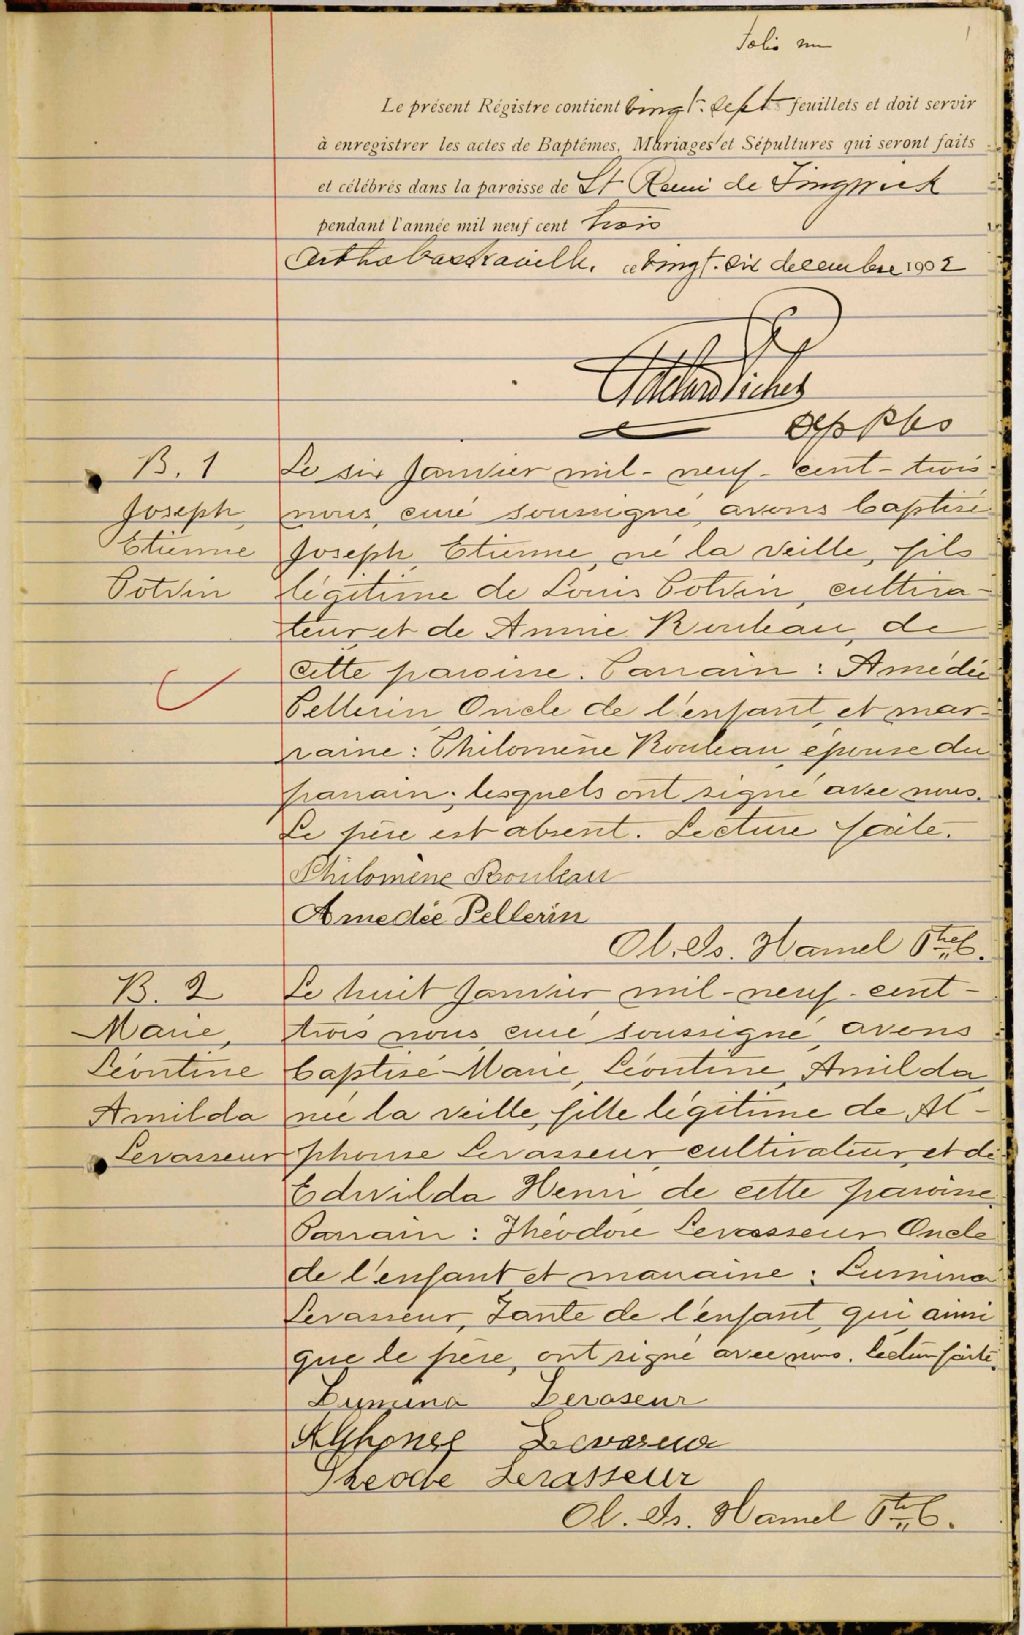 Folio un
1
Le présent Régistre contient vingt-sept feuillets et doit servir
à enregistrer les actes de Baptêmes, Mariages et Sépultures qui seront faits
et célébrés dans la paroisse de St Remi de Tingwick
pendant l'année mil neuf cent trois
Arthabaskaville, ce vingt-six decembre 1902
Adelard Pichet
Dep P
B. 1
Joseph,
Etienne
Potvin
Le six Janvier mil-neuf-cent-trois
nous, curé soussigné, avons baptisé
Joseph, Etienne, né la veille, fils
légitime de Louis Potvin, cultiva-
teur, et de Annie Rouleau, de
cette paroisse. Parrain : Amédée
Pellerin Oncle de l'enfant, et mar-
raine : Philomène Rouleau, épouse du
parrain ; lesquels ont signé avec nous.
Le père est absent. Lecture faite.
Philomène Rouleau
Amedée Pellerin
Ol. Is. Hamel Ptre C.
B. 2
Marie,
Léontine
Amilda
Levasseur
Le huit Janvier mil-neuf-cent-
trois nous, curé soussigné, avons
baptisé Marie, Léontine, Amilda,
née la veille, fille légitime de Al-
phonse Levasseur, cultivateur, et de
Edwilda Henri de cette paroisse.
Parrain : Théodore Levasseur Oncle
de l'enfant et marraine : Lumina
Levasseur, Tante de l'enfant, qui, ainsi
que le père, ont signé avec nous. Lecture faite.
Lumina Levaseur
Alphonse Levaseur
Theode Levasseur
Ol. Is. Hamel Ptre C.